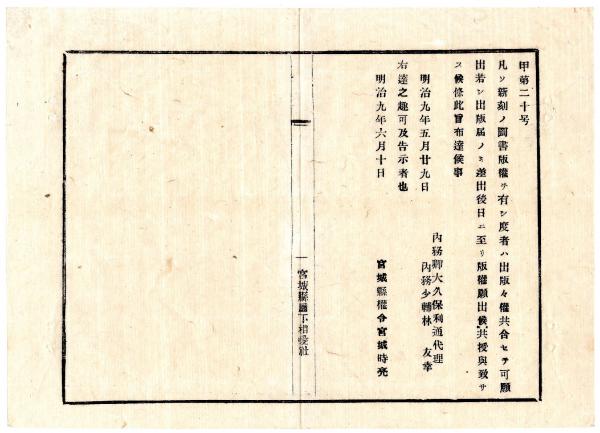 甲第二十号
凡ソ新刻ノ圖書版權ヲ有シ度者ハ出版々權共合セテ可願
出若シ出版届ノミ差出後日ニ至リ版權願出候共授與致サ
ス候條此旨布達候事
明治九年五月廿九日
內務卿大久保利通代理
內務少輔林 友幸
右達之趣可及告示者也
明治九年六月十日
宮城縣權令宮城時亮
一
宮城縣 相愛社